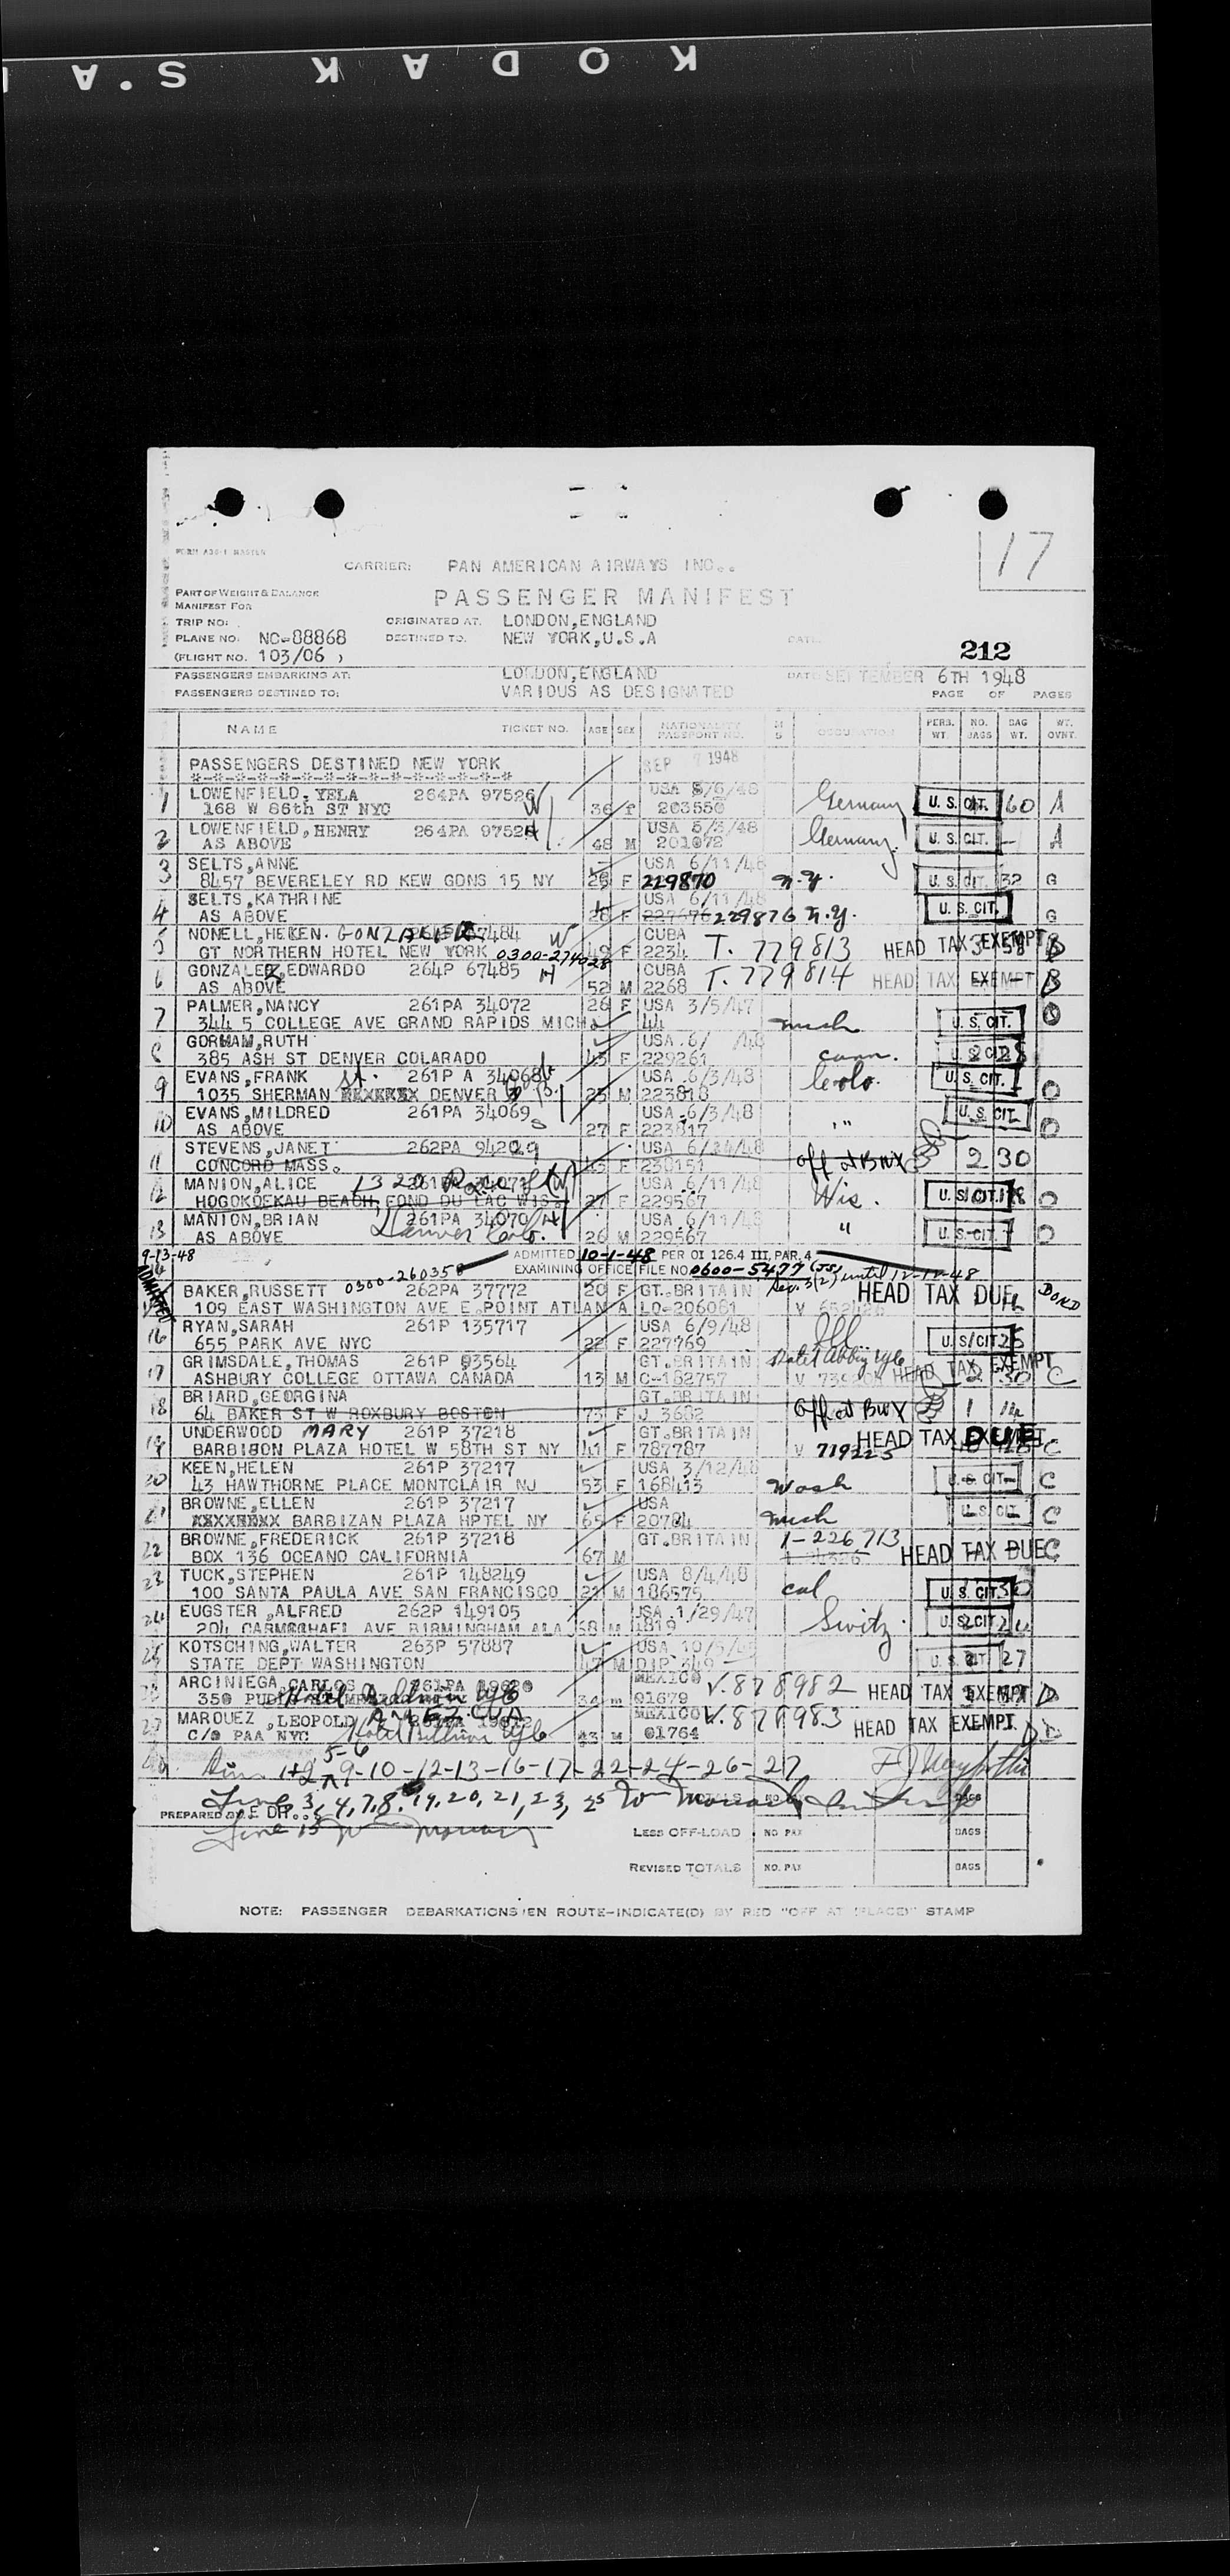 KODAK S.A
17
FORM A30-1 MASTER
CARRIER: PAN AMERICAN AIRWAYS INC..
PART OF WEIGHT & BALANCE
MANIFEST FOR
PASSENGER MANIFEST
TRIP NO: ORIGINATED AT. LONDON,ENGLAND
PLANE NO. NC-88868 DESTINED TO. NEW YORK,U.S.A DATE
(FLIGHT NO. 103/06 ) 212
PASSENGERS EMBARKING AT: LONDON,ENGLAND DATE SEPTEMBER 6TH 1948
PASSENGERS DESTINED TO: VARIOUS AS DESIGNATED PAGE OF PAGES
NAME TICKET NO. AGE SEX NATIONALITY PASSPORT NO. M S OCCUPATION PERS. WT. NO. BAGS BAG WT. WT. OVNT.
PASSENGERS DESTINED NEW YORK SEP 7 1948
*-*-*-*-*-*-*-*-*-*-*-*-*-*-*
1 LOWENFIELD,YELA 264PA 97526 USA 5/6/48
168 W 86th ST NYC 36 F 203550 Germany U. S. CIT. 60 A
2 LOWENFIELD,HENRY 264PA USA 5/3/48
AS ABOVE 48 M 201072 Germany U. S. CIT. A
3 SELTS,ANNE USA 6/11/48
8457 BEVERELEY RD KEW GDNS 15 NY 25 F 229870 n.y. U. S. CIT. 32 G
4 SELTS,KATHRINE USA 6/11/48
AS ABOVE 28 F 229876 N.Y. U. S. CIT. G
5 NONELL,HELEN. GONZALEZ W CUBA
GT NORTHERN HOTEL NEW YORK 0300-274028 F 2234 T. 779813 HEAD TAX EXEMPT B
6 GONZALEZ,EDWARDO 264P 67485 H CUBA
AS ABOVE 52 M 2268 T. 779814 HEAD TAX EXEMPT B
7 PALMER,NANCY 261PA 34072 26 F USA 3/5/47
344 5 COLLEGE AVE GRAND RAPIDS MICH. 44 mich U. S. CIT.
8 GORHAM,RUTH USA 6/ /48
385 ASH ST DENVER COLARADO F 229261 conn.
9 EVANS,FRANK st. 261P A 34068 USA 6/3/48
1035 SHERMAN DENVER 25 M 223818 Colo. U. S. CIT. O
10 EVANS,MILDRED 261PA 34069 USA 6/3/48
AS ABOVE 27 F 223817 " U. S. CIT. O
11 STEVENS,JANET 262PA USA
CONCORD MASS. F 230151 Off at BWX 2 30
12 MANION,ALICE 1320 USA 6/11/48
HOGOKOEKAU BEACH, FOND DU LAC WIS. 27 F 229567 Wis. U. S. CIT. O
13 MANION,BRIAN 261PA 34070 USA 6/11/48
AS ABOVE Denver Colo. 26 M 229567 " U. S. CIT. O
9-13-48 ADMITTED 10-1-48 PER OI 126.4 III, PAR. 4
EXAMINING OFFICE FILE NO 0600-5477 (JS)
ADMITTED 0300-260358 Sec. 3(2) until 12-12-48
BAKER,RUSSETT 262PA 37772 20 F GT.BRITAIN HEAD TAX DUE BOND
109 EAST WASHINGTON AVE E.POINT ATLAN A LO-206061
16 RYAN,SARAH 261P 135717 USA 6/9/48
655 PARK AVE NYC 22 F 227769 Ill U. S. CIT.
17 GRIMSDALE,THOMAS 261P 03564 GT.BRITAIN Hotel Abbey
ASHBURY COLLEGE OTTAWA CANADA 13 M C-182757 HEAD TAX EXEMPT 2 30 C
18 BRIARD,GEORGINA GT.BRITAIN
64 BAKER ST W ROXBURY BOSTON 75 F J 3662 Off at BWX 1 14
19 UNDERWOOD MARY 261P 37218 GT.BRITAIN HEAD TAX DUE
BARBISON PLAZA HOTEL W 58TH ST NY 41 F 787787 V 719225 C
20 KEEN,HELEN 261P 37217 USA 3/12/48
43 HAWTHORNE PLACE MONTCLAIR NJ 53 F 168413 Wash U. S. CIT. C
21 BROWNE,ELLEN 261P 37217 USA
XXXXXXXX BARBIZAN PLAZA HPTEL NY 65 F mich U. S. CIT. C
22 BROWNE,FREDERICK 261P 37218 GT.BRITAIN 1-226713
BOX 136 OCEANO CALIFORNIA 67 M HEAD TAX DUE C
23 TUCK,STEPHEN 261P 148249 USA 8/4/48
100 SANTA PAULA AVE SAN FRANCISCO 21 M 186575 cal U. S. CIT.
24 EUGSTER,ALFRED 262P 149105 USA 1/29/47
204 CARMICHAEL AVE BIRMINGHAM ALA 58 M 1819 Switz. U. S. CIT.
25 KOTSCHING,WALTER 263P 57887 USA
STATE DEPT WASHINGTON 47 M DIP 349 U. S. CIT. 27
ARCINIEGA,CARLOS MEXICO V.878982
350 34 M 01679 HEAD TAX EXEMPT D
27 MARQUEZ,LEOPOLD AMEZCUA MEXICO V.878983
C/O PAA NYC. Hotel 43 M 01764 HEAD TAX EXEMPT D
1+2 5-6 9-10-12-13-16-17-22-24-26-27
Line 3, 4, 7, 8, 19, 20, 21, 23, 25
PREPARED BY
Line 15
LESS OFF-LOAD NO PAX BAGS
REVISED TOTALS NO. PAX BAGS
NOTE: PASSENGER DEBARKATIONS EN ROUTE-INDICATE(D) BY RED "OFF AT (PLACE)" STAMP